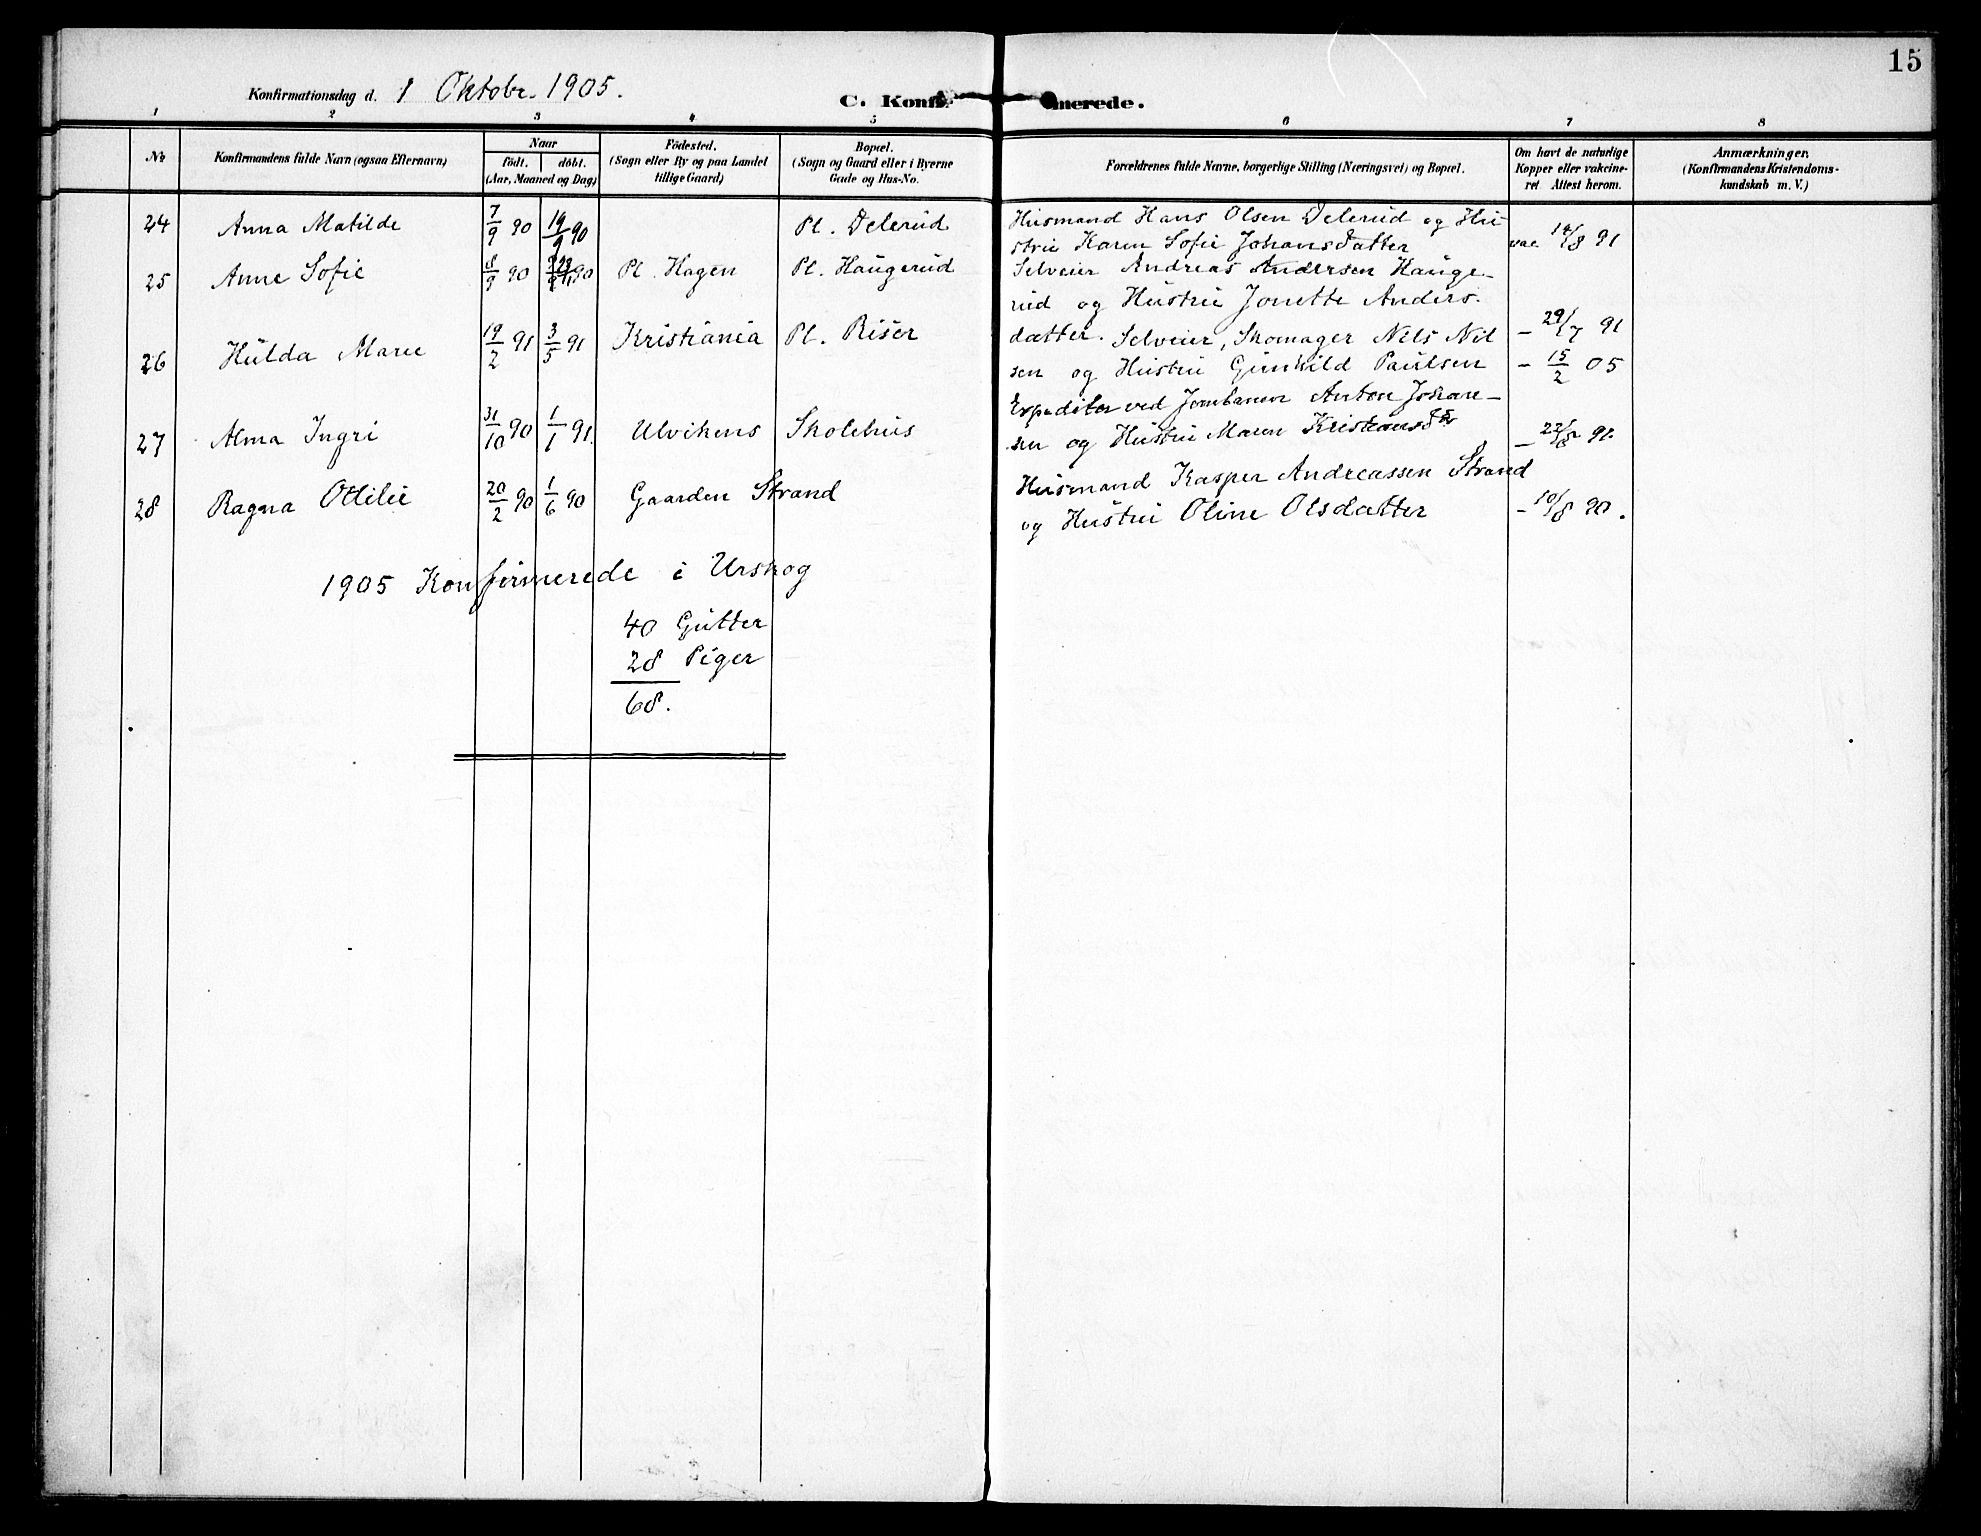 15
Konfirmationsdag d. 1 Oktobr. 1905.
C. Konfirmerede.
1 2 3 4 5 6 7 8
No
Konfirmandens fulde Navn (ogsaa Efternavn)
Naar
født. døbt.
(Aar, Maaned og Dag)
Födested.
(Sogn eller By og paa Landet
tillige Gaard)
Bopæl.
(Sogn og Gaard eller i Byerne
Gade og Hus-No.
Forældrenes fulde Navne, borgerlige Stilling (Næringsvei) og Bopæl.
Om havt de naturlige
Kopper eller vakcine-
ret. Attest herom.
Anmærkninger.
(Konfirmandens Kristendoms-
kundskab m. V.)
24 Anna Matilde 7/9 90 19/9 90 Pl. Delerud
Husmand Hans Olsen Delerud og Hu
strue Karen Sofie Johansdatter vac 14/8 91
25 Anne Sofie 8/9 90 90 Pl. Hagen Pl. Haugerud
Selveier Andreas Andersen Hauge-
rud og Hustru Jonette Anders-
datter. Selveier, Skomager Nils Nil - 29/7 91
26 Hulda Marie 19/2 91 3/5 91 Kristiania Pl. Riser
sen og Hustru Gunhild Paulsen - 15/2 05
Expeditør ved Jernbanen Anton Johane-
27 Alma Ingri 31/10 90 1/1 91. Ulvikens Skolehus
sen og Hustru Maren Kristians - 22/8 91
28 Ragna Ottilie 20/2 90 1/6 90 Gaarden Strand
Husmand Kasper Andreassen Strand
og Hustru Oline Olsdatter - 10/8 90.
1905 Konfirmerede i Urskog
40 Gutter
28 Piger
68.